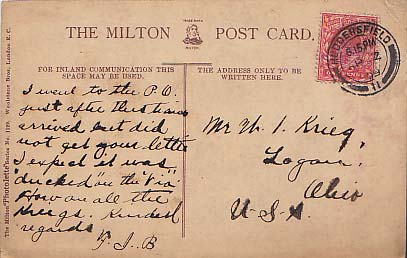 THE MILTON POST CARD.
FOR INLAND COMMUNICATION THIS
SPACE MAY BE USED.
THE ADDRESS ONLY TO BE
WRITTEN HERE.
I went to the P.O.
just after this time
arrived but did
not get your letter
I expect it was
"ducked" on the "Via"
How are all the
Kriegs. Kindest
regards
F. J. B
Mr 1. Krieg
Logan,
Ohio
U-S-A
HUDDERSFIELD
5.15 PM
11
The Milton "Photolette" Series No. 1129. Woolstone Bros., London, E.C.